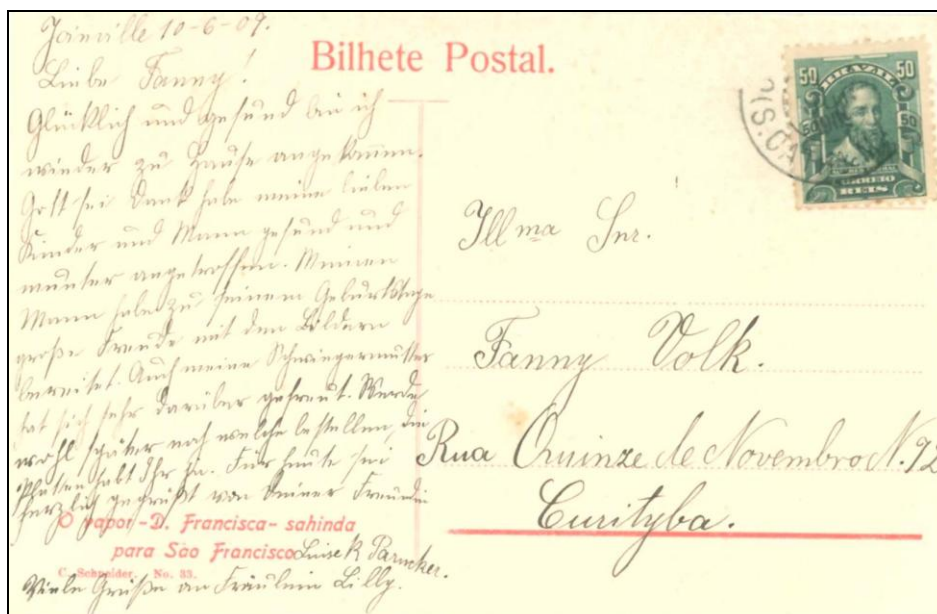 Joinville 10-6-09.
Bilhete Postal.
Liebe Fanny!
Glücklich und gesund bin ich
wieder zu Hause angekommen.
Gott sei Dank habe meine lieben
Kinder und Mann gesund und
munter angetroffen. Meinen
Mann habe zu seinem Geburtstage
große Freude mit den Bildern
bereitet. Auch meine Schwiegermutter
hat sich sehr darüber gefreut. Werde
wohl später noch welche bestellen, die
Platten habt Ihr ja. Für heute sei
herzlich gegrüßt von Deiner Freundin
Luise K
Viele Grüße an Fräulein Lilly.
O vapor -D. Francisca- sahinda
para São Francisco
C. Schneider. No. 33.
50 BRAZIL 50
50 50
CORREIO
REIS
Illma Snr.
Fanny Volk.
Rua Quinze de Novembro N. 92
Curityba.